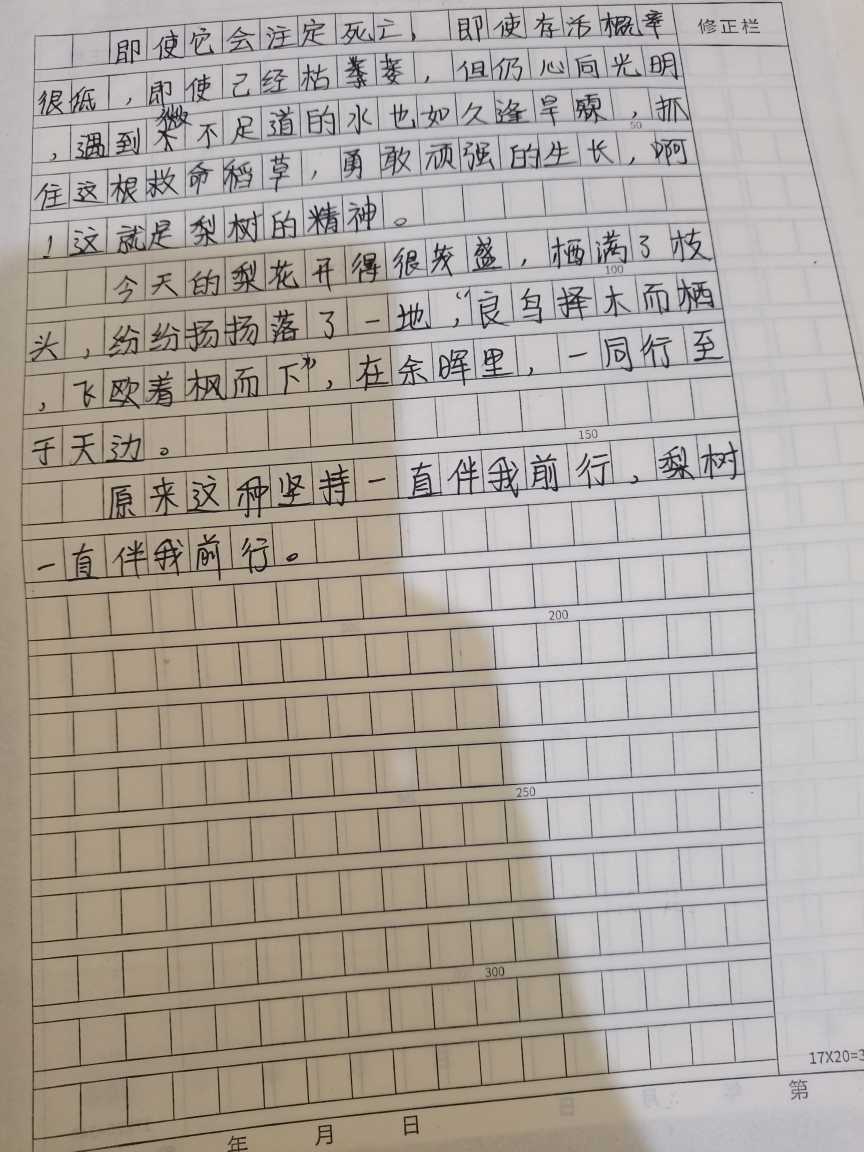 即使它会注定死亡，即使存活概率 修正栏
很低，即使己经枯萎萎，但仍心向光明
，遇到微不足道的水也如久逢旱霖，抓
50
住这根救命稻草，勇敢顽强的生长，啊
！这就是梨树的精神。
今天的梨花开得很茂盛，栖满了枝
100
头，纷纷扬扬落了一地，“良鸟择木而栖
，飞欧着枫而下”，在余晖里，一同行至
于天边。
150
原来这种坚持一直伴我前行，梨树
一直伴我前行。
200
250
300
17X20=3
年 月 日 第